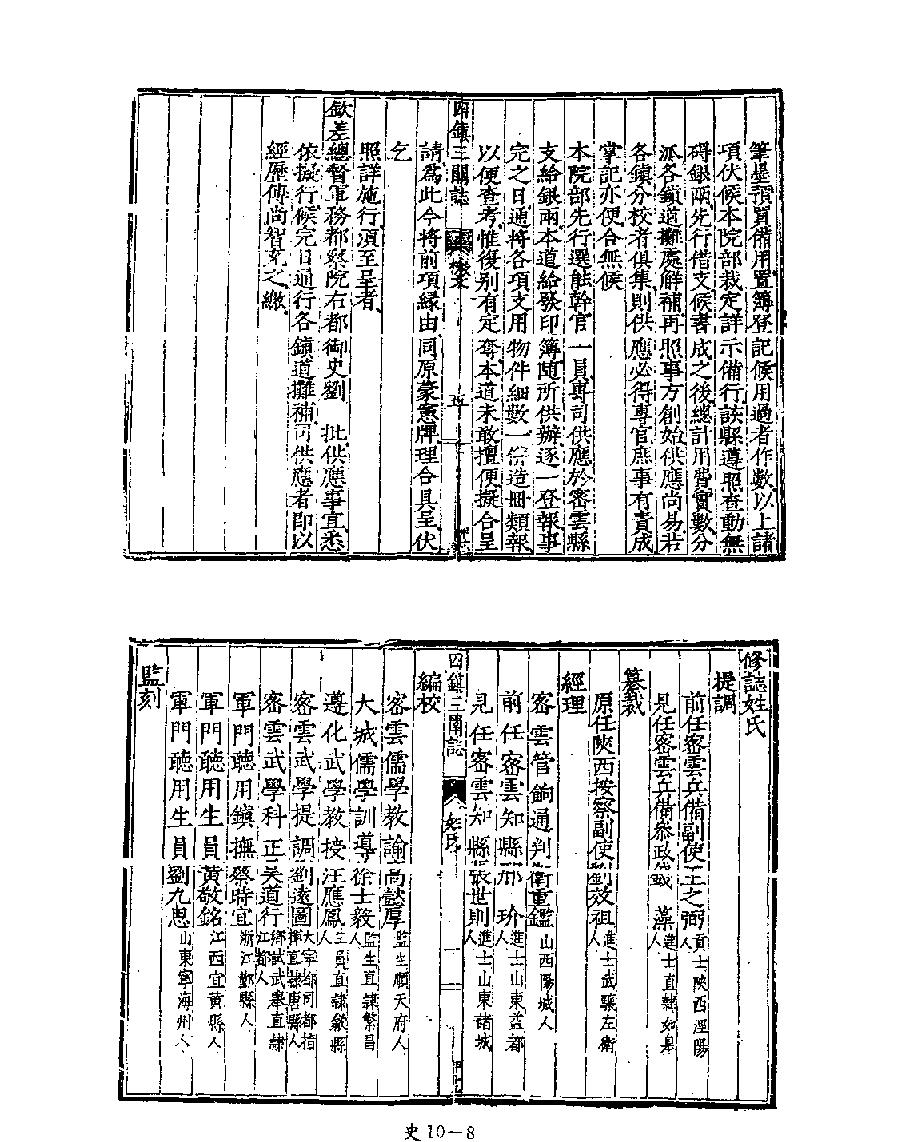 筆墨預買備用置簿登記候用過者作數以上諸
項伏候本院部裁定詳示備行該縣遵照查動無
碍銀兩先行借支候書成之後總計用費實數分
派各鎮道攤處解補再照事方創始供應尚易若
各鎮分校者俱集則供應必得專官庶事有責成
掌記亦便合無候
本院部先行選能幹官一員專司供應於密雲縣
支給銀兩本道給發印簿隨所供辦逐一登報事
完之日通將各項支用物件細數一併造冊類報
以便查考惟復別有定奪本道未敢擅便擬合呈
四鎮三關誌
請為此今將前項緣由同原蒙憲牌理合具呈伏
乞
照詳施行須至呈者
欽差總督軍務都察院右都御史劉 批供應事宜悉
依擬行候完日通行各鎮道攤補司供應者即以
經歷傅尚智充之繳
修誌姓氏
提調
前任密雲兵備副使王之弼 進士陝西涇陽人
見任密雲兵備參政錢 藻 進士直隸如皋人
纂裁
原任陝西按察副使劉效祖 進士武驤左衛人
經理
密雲管餉通判衛重鑑 山西陽城人
前任密雲知縣邢 玠 進士山東益都人
見任密雲知縣張世則 進士山東諸城人
四鎮三關誌 姓氏
編校
密雲儒學教諭尚談厚 監生順天府人
大城儒學訓導徐士毅 監生直隸繁昌人
遵化武學教授汪應鳳 直隸歙縣人
密雲武學提調劉遠圖 大寧都司都指揮直隸唐縣人
密雲武學科正吳道行 鄉試武舉直隸江都人
軍門聽用鎮撫蔡時宜 浙江鄞縣人
軍門聽用生員黃敬銘 江西宜黃縣人
軍門聽用生員劉九思 山東寧海州人
監刻
史10-8